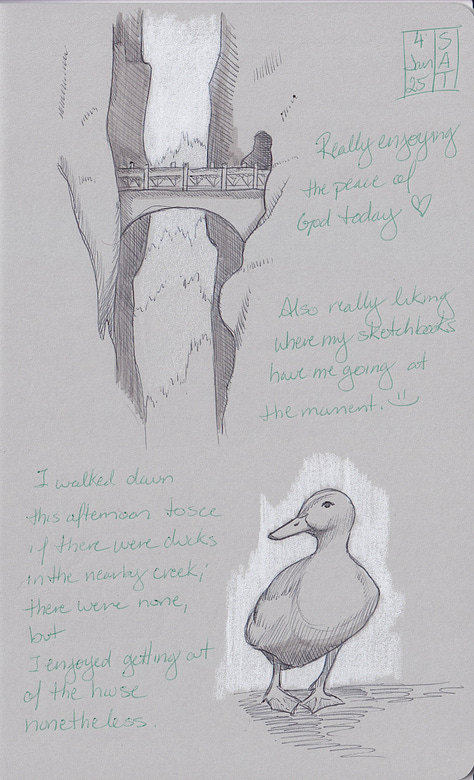 4
Jan
25
SAT
Really enjoying
the peace of
God today ♡
Also really liking
where my sketchbooks
have me going at
the moment. :)
I walked down
this afternoon to see
if there were ducks
in the nearby creek;
there were none,
but
I enjoyed getting out
of the house
nonetheless.